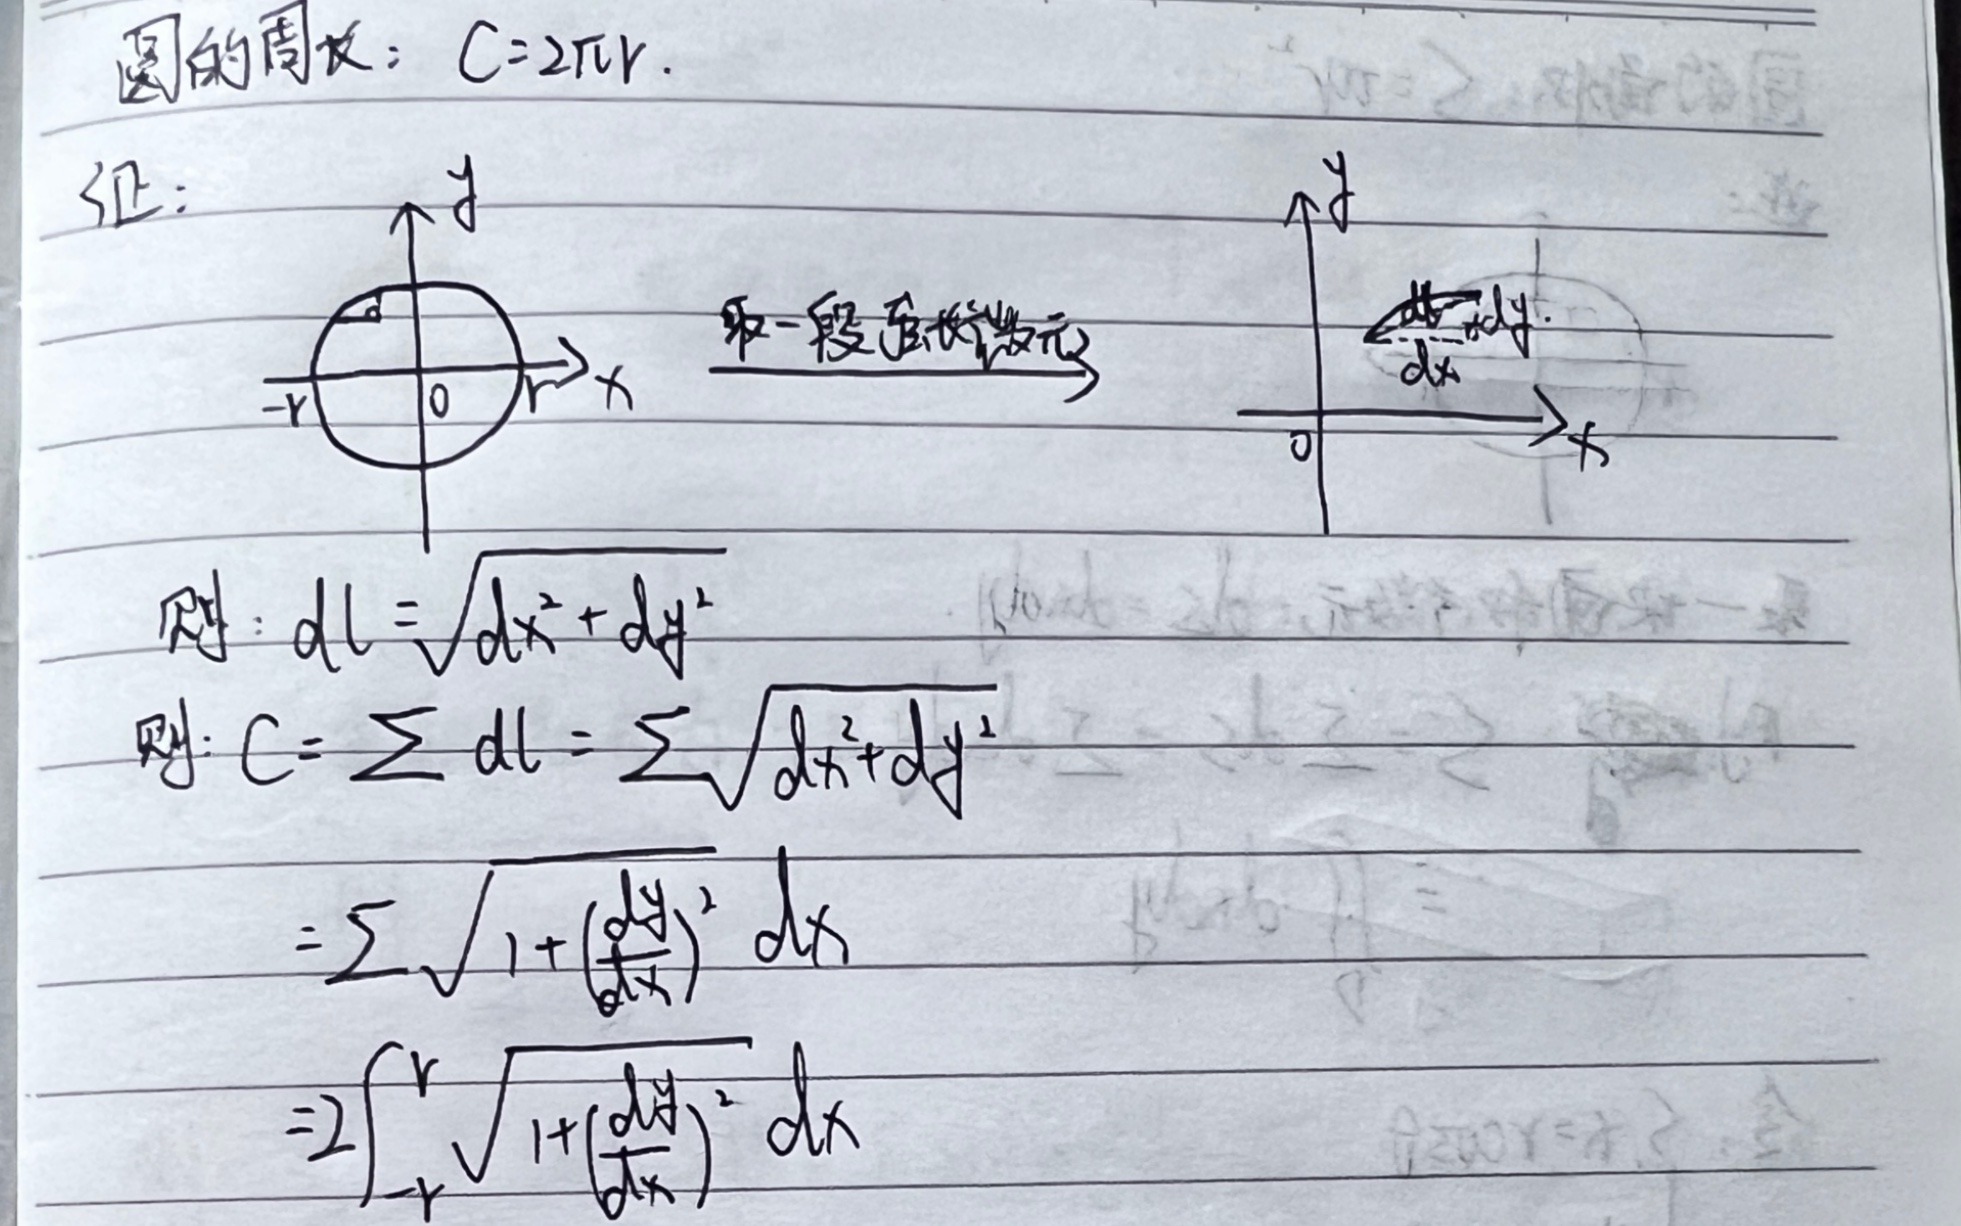 圆的周长: C=2πr.
证:
y
x
-r
0
r
取一段弧长微元
y
dl
dy.
dx
0
x
则: dl = √(dx²+dy²)
则: C= Σ dl = Σ√(dx²+dy²)
=Σ√(1+(dy/dx)²) dx
=2∫_{-r}^{r} √(1+(dy/dx)²) dx